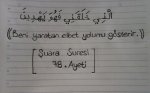 الَّذِي خَلَقَنِي فَهُوَ يَهْدِينِ
((Beni yaratan elbet yolumu gösterir.))
Şuara Suresi
78. Ayeti